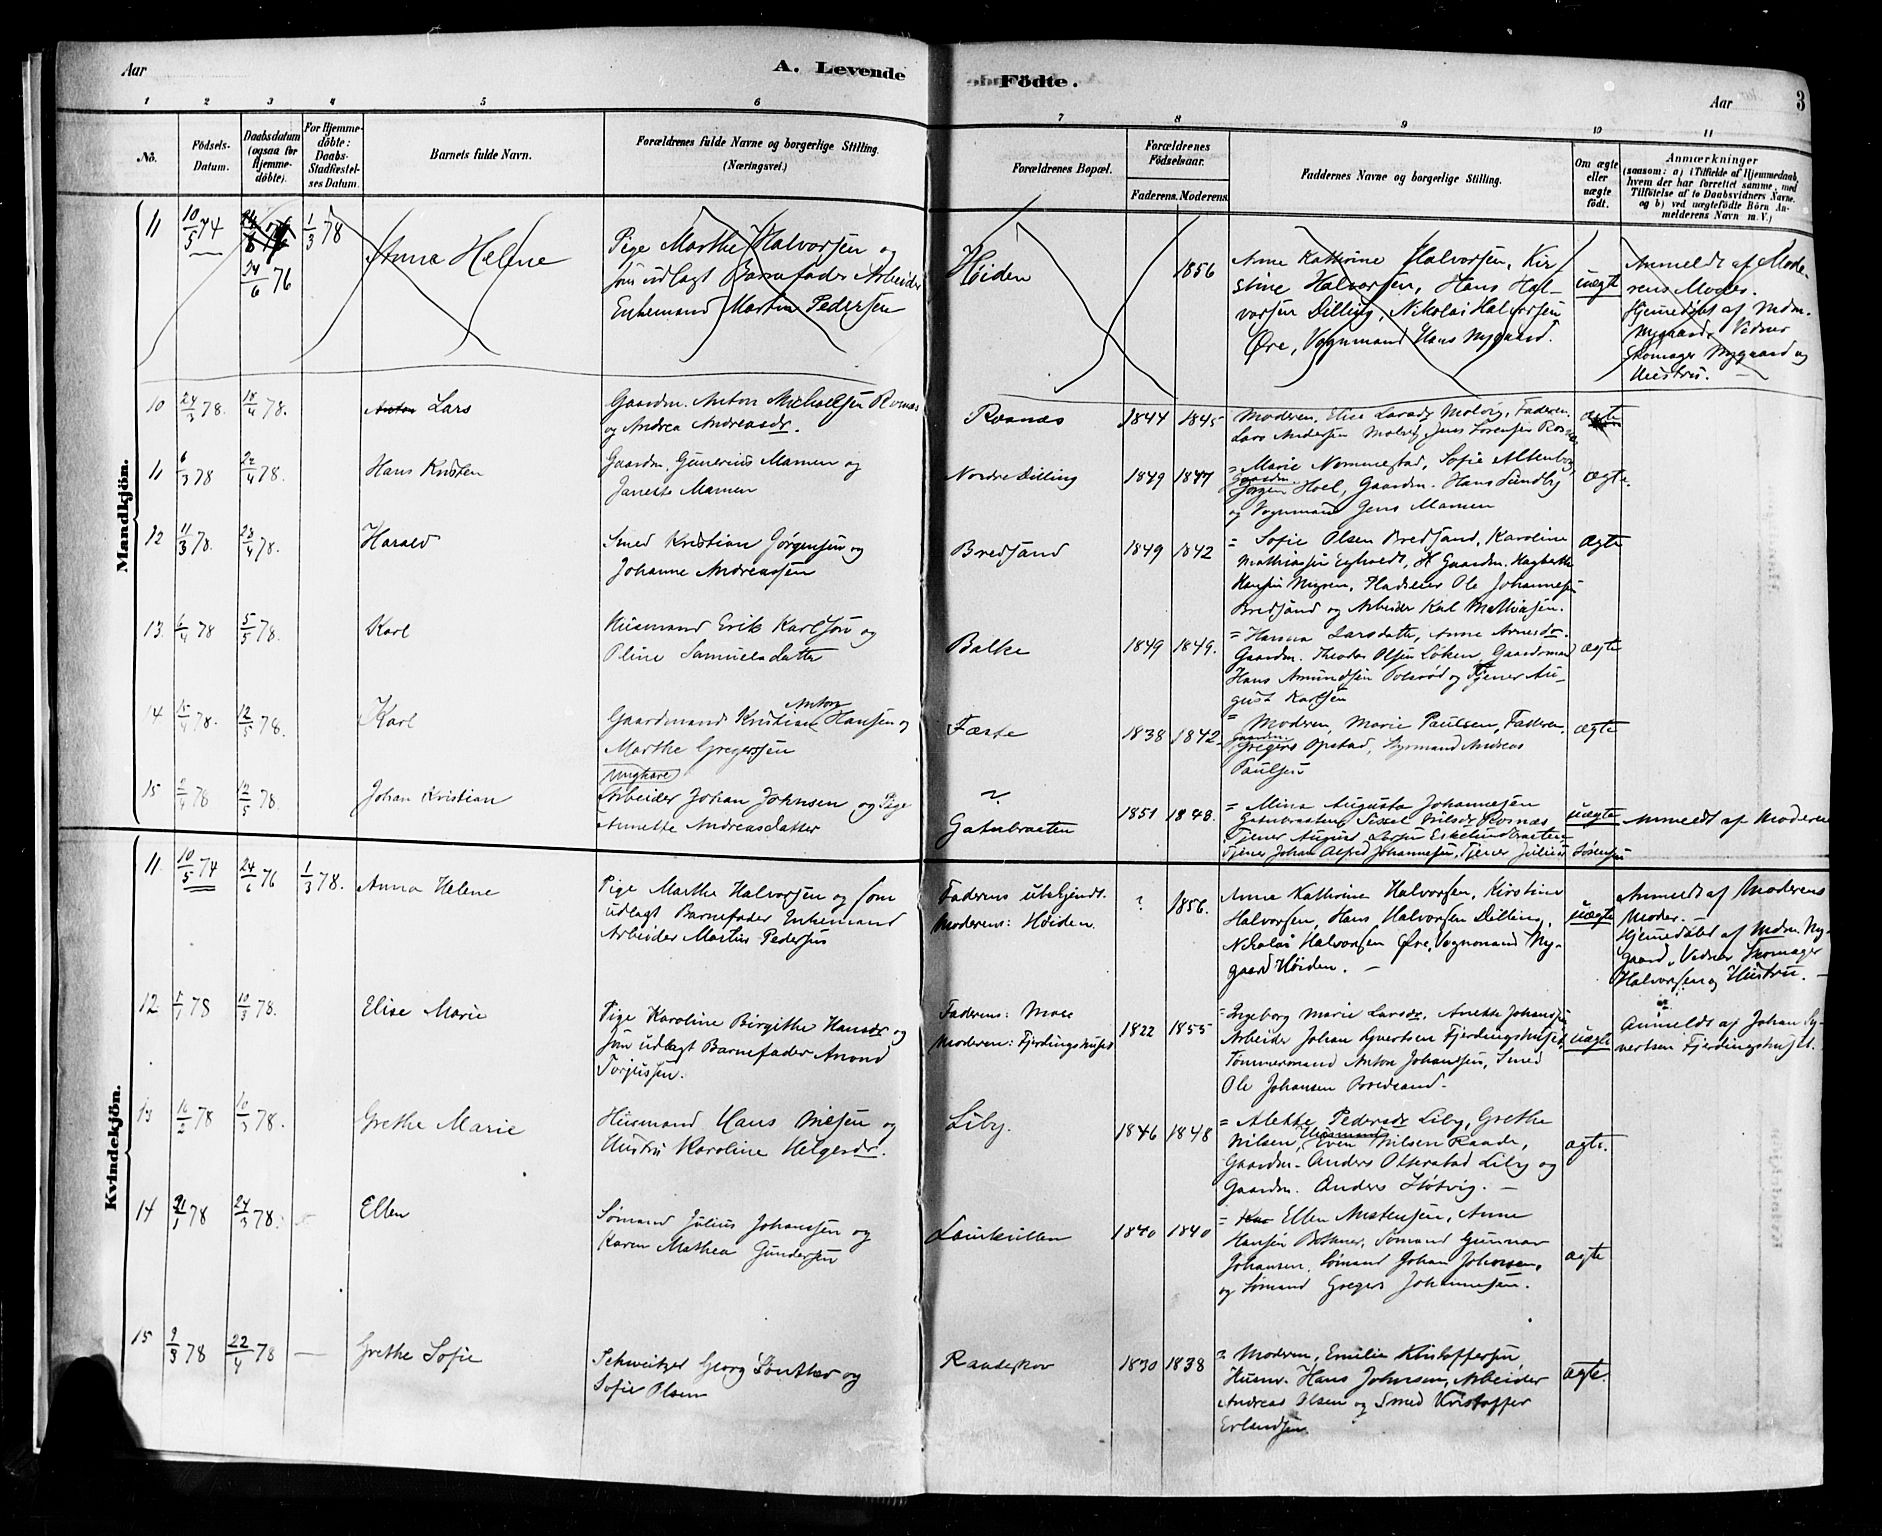 Aar
A. Levende
Födte.
Aar
3
1 2 3 4 5 6 7 8 9 10 11
No.
Födsels-
Datum.
Daabsdatum
(ogsaa for
Hjemme-
döbte).
For Hjemme-
döbte:
Daabs-
Stadfæstel-
ses Datum.
Barnets fulde Navn.
Forældrenes fulde Navne og borgerlige Stilling.
(Næringsvei.)
Forældrenes Bopæl.
Forældrenes
Födselsaar.
Faderens. Moderens.
Faddernes Navne og borgerlige Stilling.
Om ægte
eller
uægte
födt.
Anmærkninger
(saasom: a) i Tilfælde af Hjemmedaab,
hvem der har forrettet samme, med
Tilföielse af to Daabsvidners Navne.
og b) ved uægtefödte Börn An-
melderens Navn m. V.)
Mandkjön.
11 10/5 74 24/6 76 1/3 78
Anna Helene
Pige Marthe Halvorsen og
som udlagt Barnefader Arbeider
Enkemand Martin Pedersen
Høiden
1856
Anne Kathrine Halvorsen, Kir-
stine Halvorsen, Hans Hal-
vorsen Dilling, Nikolai Halvorsen
Øre, Vognmand Hans Nygaard.
uægte
Anmeldt af Mode-
rens Moder.
Hjemedøbt af Mdm.
Nygaard, Vidner
Skomager Nygaard og
Hustru.
10 24/2 78. 18/4 78.
Anton Lars
Gaardm. Anton Michaelsen Rosnæs
og Andrea Andreasdr.
Rosnæs
1844 1845
Moderen, Elise Larsdr Molvig, Faderen,
Lars Andersen Molvig, Jens Sørensen Rosnæs
ægte
11 6/3 78 22/4 78.
Hans Kristen
Gaardm. Gunerius Mamen og
Janette Mamen
Nordre Dilling
1849 1847
= Marie Nommestad, Sofie Altenborg,
Gaardm.
Jørgen Hoel, Gaardm. Hans Sundby
og Vognmand Jens Mamen
ægte.
12 11/3 78. 22/4 78.
Harald
Smed Kristian Jørgensen og
Johanne Andreassen
Bredsand
1849 1842
= Sofie Olsen Bredsand, Karoline
Mathiassen Eghvedt, Gaardm. Hagbarth
Hansen Myren, Pladseier Ole Johannesen
Bredsand og Arbeider Karl Mathiasen.
Ægte
13. 6/4 78 5/5 78.
Karl
Husmand Erik Karlson og
Oline Samuelsdatter
Balke
1849 1849.
= Hanna Larsdatter, Anne Arnesdr.
Gaardm. Theodor Olsen Løken, Gaardmand
Hans Amundsen Solerød og Tjener Au-
gust Karlsen
ægte
14 15/4 78. 12/5 78.
Karl
Anton
Gaardmand Kristian Hansen og
Marthe Gregersen
Fæste
1838 1842.
= Moderen, Marie Paulsen, Faderen,
Gaardm.
Gregers Opstad, Styrmand Andreas
Paulsen
ægte
15 2/4 78 12/5 78.
Johan Kristian
Ungkarl
Arbeider Johan Johnsen og Pige
Annette Andreasdatter
?
Gatubraaten
1851 1848.
= Mina Augusta Johannesen
Gatubraaten, Sissel Nilsdr Rosnæs
Tjener August Larsen Eskelundbraaten
Tjener Johan Alfred Johannesen, Tjener Julius Sørensen
uægte
Anmeldt af Moderen
Kvindekjön.
11. 10/5 74 24/6 76 1/3 78.
Anna Helene
Pige Marthe Halvorsen og som
udlagt Barnefader Enkemand
Arbeider Martin Pedersen
Faderens ubekjendt.
Moderens: Høiden.
? 1856.
Anna Kathrine Halvorsen, Kirstine
Halvorsen, Hans Halvorsen Dilling,
Nikolai Halvorsen Øre, Vognmand Ny-
gaard Høiden. —
uægte
Anmeldt af Moderens
Moder.
Hjemedøbt af Mdm. Ny-
gaard, Vidner Skomager
Halvorsen og Hustru. —
12. 5/1 78 10/3 78.
Elise Marie
Pige Karoline Birgithe Hansdr og
som udlagt Barnefader Anond
Torjussen.
Faderens: Moss
Moderen: Fjerdingshuset
1822 1855
= Ingeborg Marie Larsdr, Anette Johansen
Arbeider Johan Syvertsen Fjerdingshuset,
Tømmermand Anton Johansen, Smed
Ole Johansen Bredsand.
uægte
Anmeldt af Johan Sy-
vertsen Fjerdingshuset.
13 16/2 78 10/3 78.
Grethe Marie
Husmand Hans Nilsen og
Hustru Karoline Helgesdr.
Liby.
1846 1848
= Alette Pedersdr Liby, Grethe
Husmand
Nilsen, Even Nilsen Raade,
Gaardm. Anders Olsrstad Liby og
Gaardm. Anders Høtvig. —
ægte.
14 21/1 78 24/3 78.
Ellen
Sømand Julius Johansen og
Karen Mathea Gundersen
1840 1840
= Ellen Mortensen, Anne
Hansen, Sømand Gunnar
Johansen, Sømand Johan Johansen,
og Sømand Gregers Johannesen.
ægte
15 9/3 78 22/4 78 —
Grethe Sofie
Schweitzer Georg Günther og
Sofie Olsen
Raadeskov
1830 1838
= Moderen, Emilie Kristoffersen,
Husm. Hans Johnsen, Arbeider
Andreas Olsen og Smed Kristoffer
Erlandsen.
ægte.